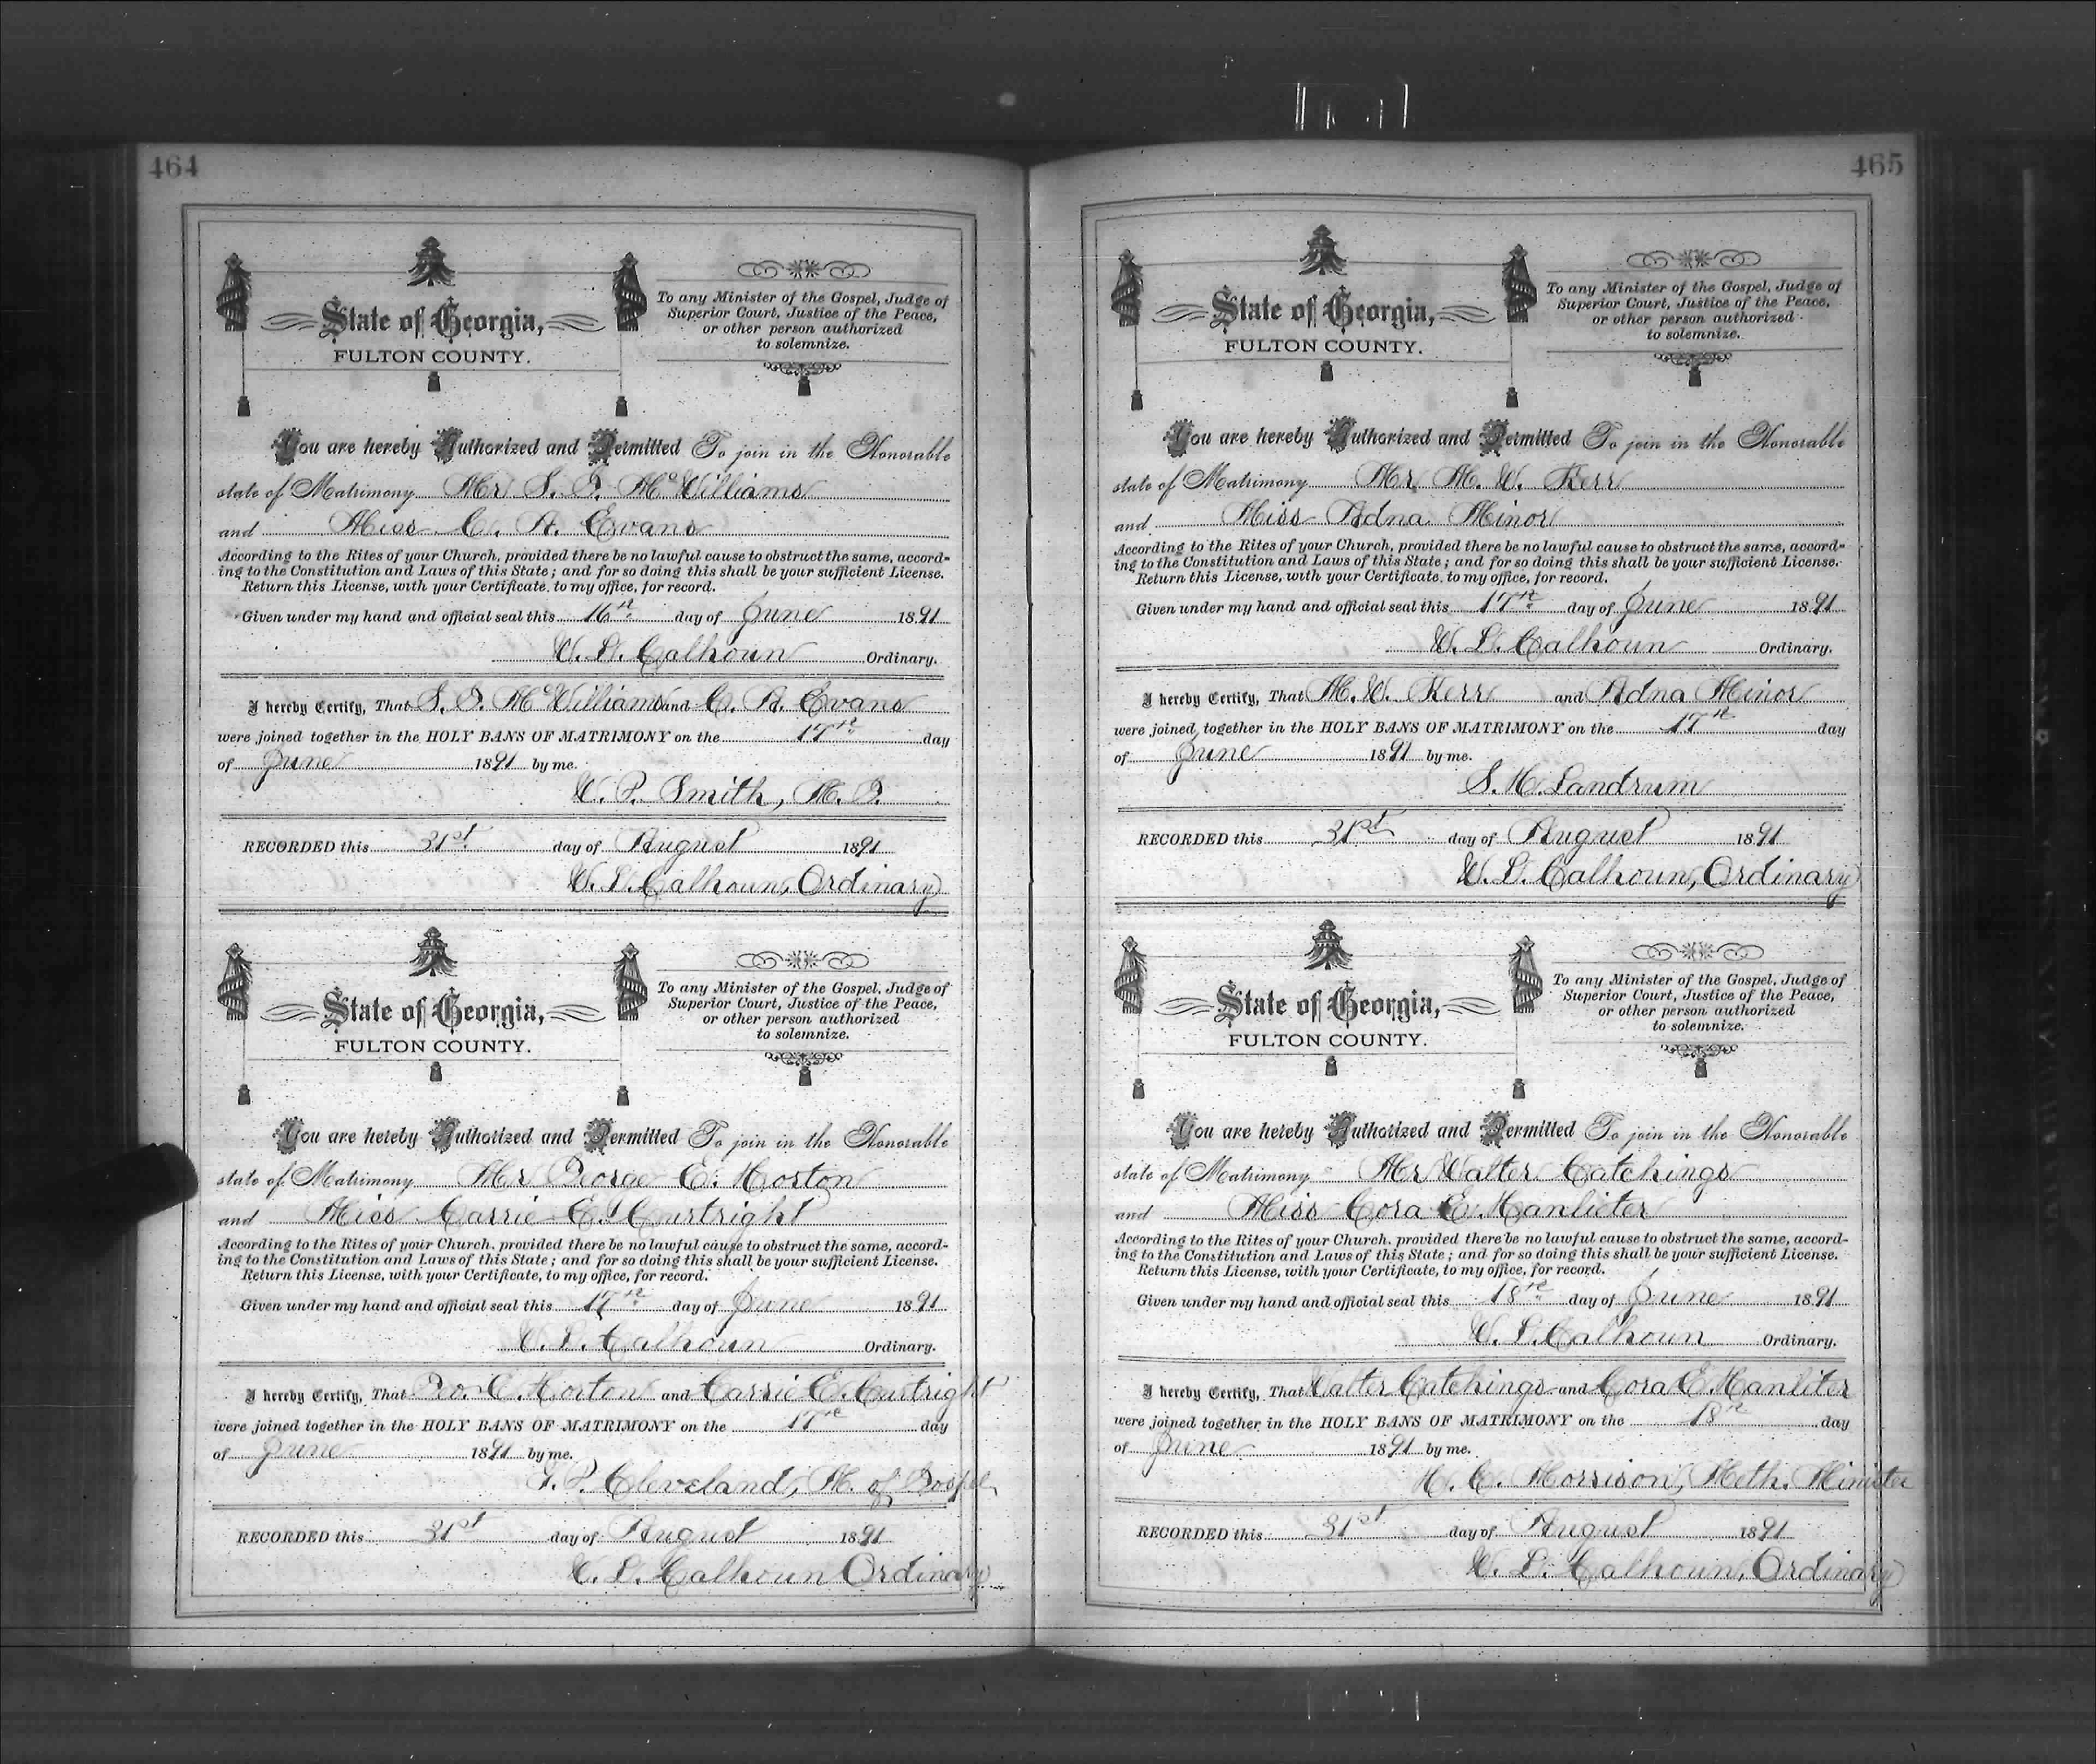 464
State of Georgia,
FULTON COUNTY.
To any Minister of the Gospel, Judge of
Superior Court, Justice of the Peace,
or other person authorized
to solemnize.
You are hereby Authorized and Permitted To join in the Honorable
state of Matrimony Mr S. P. McWilliams
and Miss C. A. Evans
According to the Rites of your Church, provided there be no lawful cause to obstruct the same, accord-
ing to the Constitution and Laws of this State; and for so doing this shall be your sufficient License.
Return this License, with your Certificate, to my office, for record.
Given under my hand and official seal this 16th day of June 1891
W. L. Calhoun Ordinary.
I hereby Certify, That S. P. McWilliams and C. A. Evans
were joined together in the HOLY BANS OF MATRIMONY on the 17th day
of June 1891 by me.
W. P. Smith,
RECORDED this 31st day of August 1891
W. L. Calhoun, Ordinary
State of Georgia,
FULTON COUNTY.
To any Minister of the Gospel, Judge of
Superior Court, Justice of the Peace,
or other person authorized
to solemnize.
You are hereby Authorized and Permitted To join in the Honorable
state of Matrimony Mr George E. Horton
and Miss Carrie E. Curtright
According to the Rites of your Church, provided there be no lawful cause to obstruct the same, accord-
ing to the Constitution and Laws of this State; and for so doing this shall be your sufficient License.
Return this License, with your Certificate, to my office, for record.
Given under my hand and official seal this 17th day of June 1891
W. L. Calhoun Ordinary.
I hereby Certify, That Geo. E. Horton and Carrie E. Curtright
were joined together in the HOLY BANS OF MATRIMONY on the 17th day
of June 1891 by me.
T. P. Cleveland, M. of Gospel
RECORDED this 31st day of August 1891
W. L. Calhoun Ordinary
465
State of Georgia,
FULTON COUNTY.
To any Minister of the Gospel, Judge of
Superior Court, Justice of the Peace,
or other person authorized
to solemnize.
You are hereby Authorized and Permitted To join in the Honorable
state of Matrimony Mr M. W. Kerr
and Miss Adna Minor
According to the Rites of your Church, provided there be no lawful cause to obstruct the same, accord-
ing to the Constitution and Laws of this State; and for so doing this shall be your sufficient License.
Return this License, with your Certificate, to my office, for record.
Given under my hand and official seal this 17th day of June 1891
W. L. Calhoun Ordinary.
I hereby Certify, That M. W. Kerr and Adna Minor
were joined together in the HOLY BANS OF MATRIMONY on the 17th day
of June 1891 by me.
S. H. Landrum
RECORDED this 31st day of August 1891
W. L. Calhoun, Ordinary
State of Georgia,
FULTON COUNTY.
To any Minister of the Gospel, Judge of
Superior Court, Justice of the Peace,
or other person authorized
to solemnize.
You are hereby Authorized and Permitted To join in the Honorable
state of Matrimony Mr Walter Catchings
and Miss Cora E. Hanliter
According to the Rites of your Church, provided there be no lawful cause to obstruct the same, accord-
ing to the Constitution and Laws of this State; and for so doing this shall be your sufficient License.
Return this License, with your Certificate, to my office, for record.
Given under my hand and official seal this 18th day of June 1891
W. L. Calhoun Ordinary.
I hereby Certify, That Walter Catchings and Cora E. Hanliter
were joined together in the HOLY BANS OF MATRIMONY on the 18th day
of June 1891 by me.
H. C. Morrison, Meth. Minister
RECORDED this 31st day of August 1891
W. L. Calhoun, Ordinary